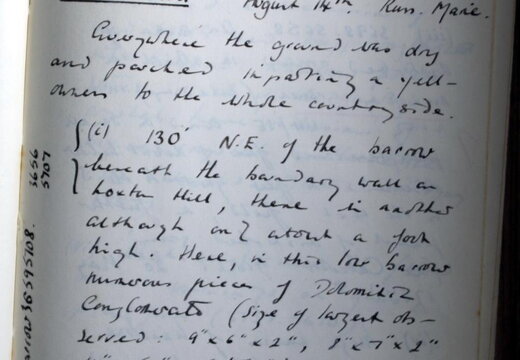 August 14th. Russ. Marie.
Everywhere the ground was dry
and parched imparting a yell-
owness to the whole countryside.
(i) 130' N.E. of the barrow
beneath the boundary wall on
Hoxter Hill, there is another
although only about a foot
high. Here, in this low barrow
numerous pieces of Dolomitic
Conglomerate (size of largest ob-
served: 9"x6"x2", 8"x7"x2"
3656
5707
barrow 36595708.